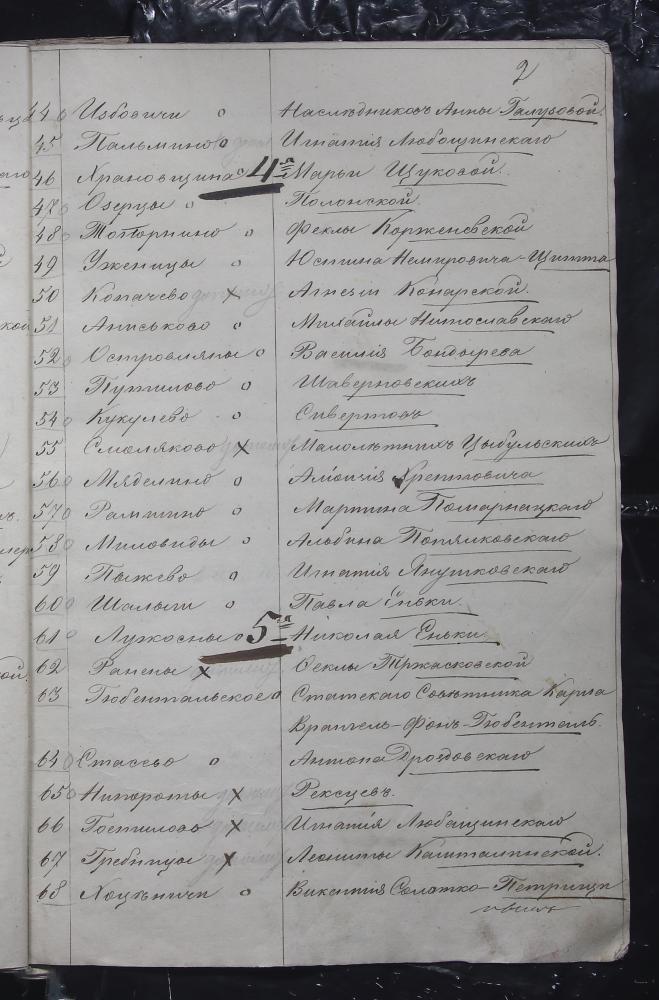 2
44 Избовичи о Наслѣдниковъ Анны Галузовой.
45 Пальмино о Игнатія Любощинскаго
46 Храповщина о 4я Марьи Щуковой.
47 Озерцы о Полонской.
48 Топорнино о Феклы Корженевской
49 Уженицы о Юстина Немировича-Щитта
50 Копачево х Агнеіи Конарской.
51 Аниськово о Михайлы Нитославскаго
52 Островляны о Василія Бондырева
53 Путилово о Шаверновскихъ
54 Кукулево о Сивертовъ
55 Смоляково х Малолѣтнихъ Цыбульскихъ
56 Мяделино о Хрептовича
57 о Мартина Помарнацкаго
58 Миловиды о Альбина
59 Пыжево о Игнатія Янушковскаго
60 Шалыги о Павла Еньки.
61 Лужосны о 5я Николая Еньки
62 х Ѳеклы Тржасковской
63 Гюбентальское о Статскаго Совѣтника Карла
Врангель-Фонъ-Гюбенталь.
64 Стасево о Антона Дроздовскаго
65 х
66 Гостилово х Игнатія Любащинскаго
67 Гребницы х
68 Хоцѣничи о Викентія Солотко-Петрищи